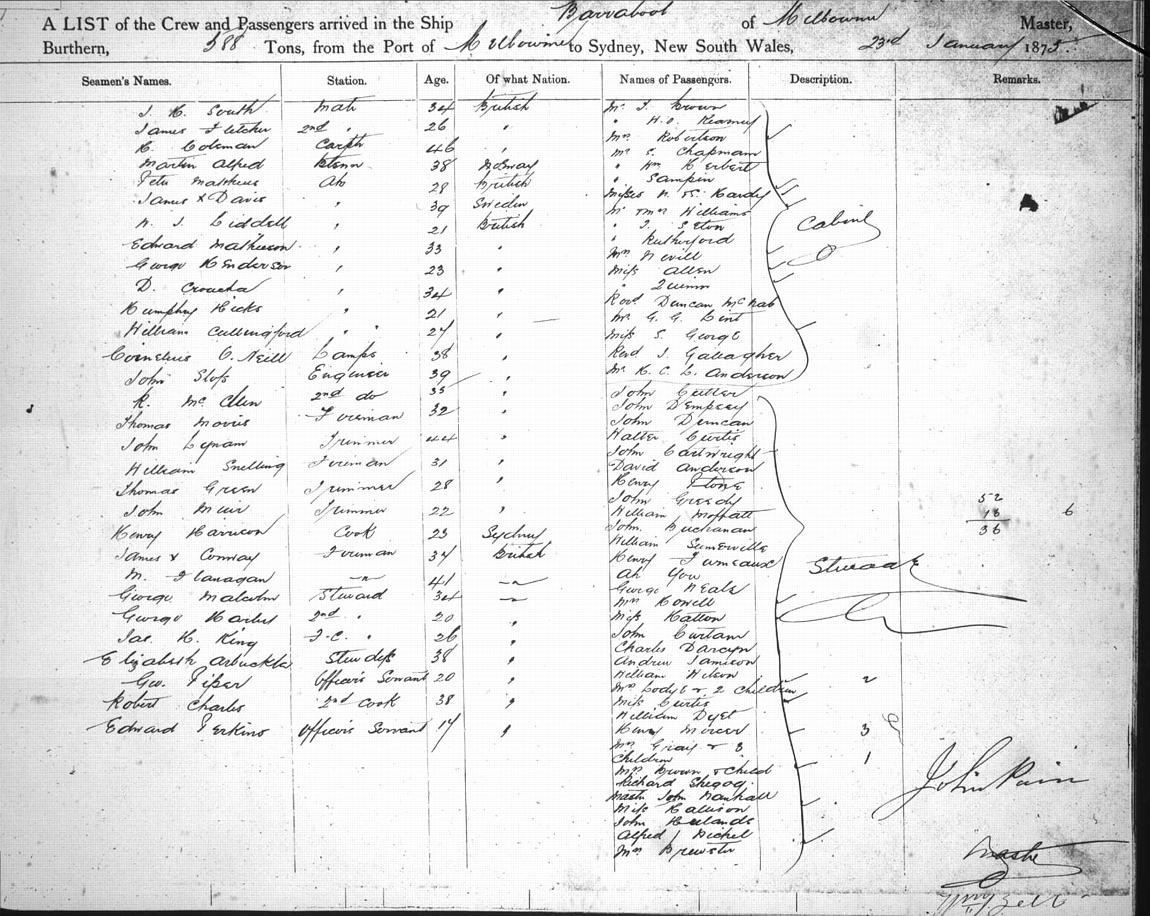 A LIST of the Crew and Passengers arrived in the Ship Barrabool of Melbourne Master,
Burthern, 588 Tons, from the Port of Melbourne to Sydney, New South Wales, 23rd January 1875.
Seamen's Names. Station. Age. Of what Nation. Names of Passengers. Description. Remarks.
J. H. South Mate 34 British
James Fletcher 2nd " 26 "
H. Coleman Carptr 46 "
Martin Alfred 38 Norway
Peter Matthews Ab 28 British
James x Davis " 39 Sweden
W. J. Liddell " 21 British
Edward Mathieson " 33 "
George Henderson " 23 "
D. " 34 "
Humphry Hicks " 21 "
William Cullingford " " 27 "
Cornelius O. Neill Lamps 38 "
John Sloss Engineer 39 "
R. Mc 2nd do 35 "
Thomas Morris Fireman 32 "
John Lynam Trimmer 44 "
William Snelling Fireman 31 "
Thomas Green Trimmer 28 "
John Muir Trimmer 22 "
Henry Harrison Cook 23 Sydney
James x Conway Fireman 37 British
M. Flanagan —"— 41 —"—
George Malcolm Steward 34 —"—
George Harley 2nd " 20 "
Jas. H. King F.C. " 26 "
Elizabeth Arbuckle Stewdess 38 "
Geo. Piper Officer's Servant 20 "
Robert Charles 2nd Cook 38 "
Edward Perkins Officer's Servant 17 "
Mr J. Brown
" H.O. Kearney
Mrs Robertson
Mr S. Chapman
" Wm Herbert
" Sampin
Misses N. & E. Hardy
Mr & Mrs Williams
" J. Seton
" Rutherford
Mrs Nevill
Miss Allen
" Quinn
Revd Duncan McNab
Mr G. G. Lint
Miss S. George
Revd J. Gallagher
Mr H. C. L. Anderson
Cabin
John Cutler
John Dempsey
John Duncan
Walter Curtis
John Cartwright
David Anderson
Henry Stone
John Greedy
William Moffatt
John Buchanan
William Somerville
Henry Furneaux
Ah You
George Neale
Mrs Howell
Miss Hatton
John Curtain
Charles Darcyn
Andrew Jamieson
William Wilson
Mrs Body & 2 Children 2
Miss Curtis
William Dyet
Henry Mercer
Mrs Gray & 3 3
Children
Mrs Brown & Child 1
Richard Shegog
Mastr John Marshall
Miss Hallison
John
Alfred Nichel
Mrs Brewster
Steerage
52
18 6
36
John Pain
Master